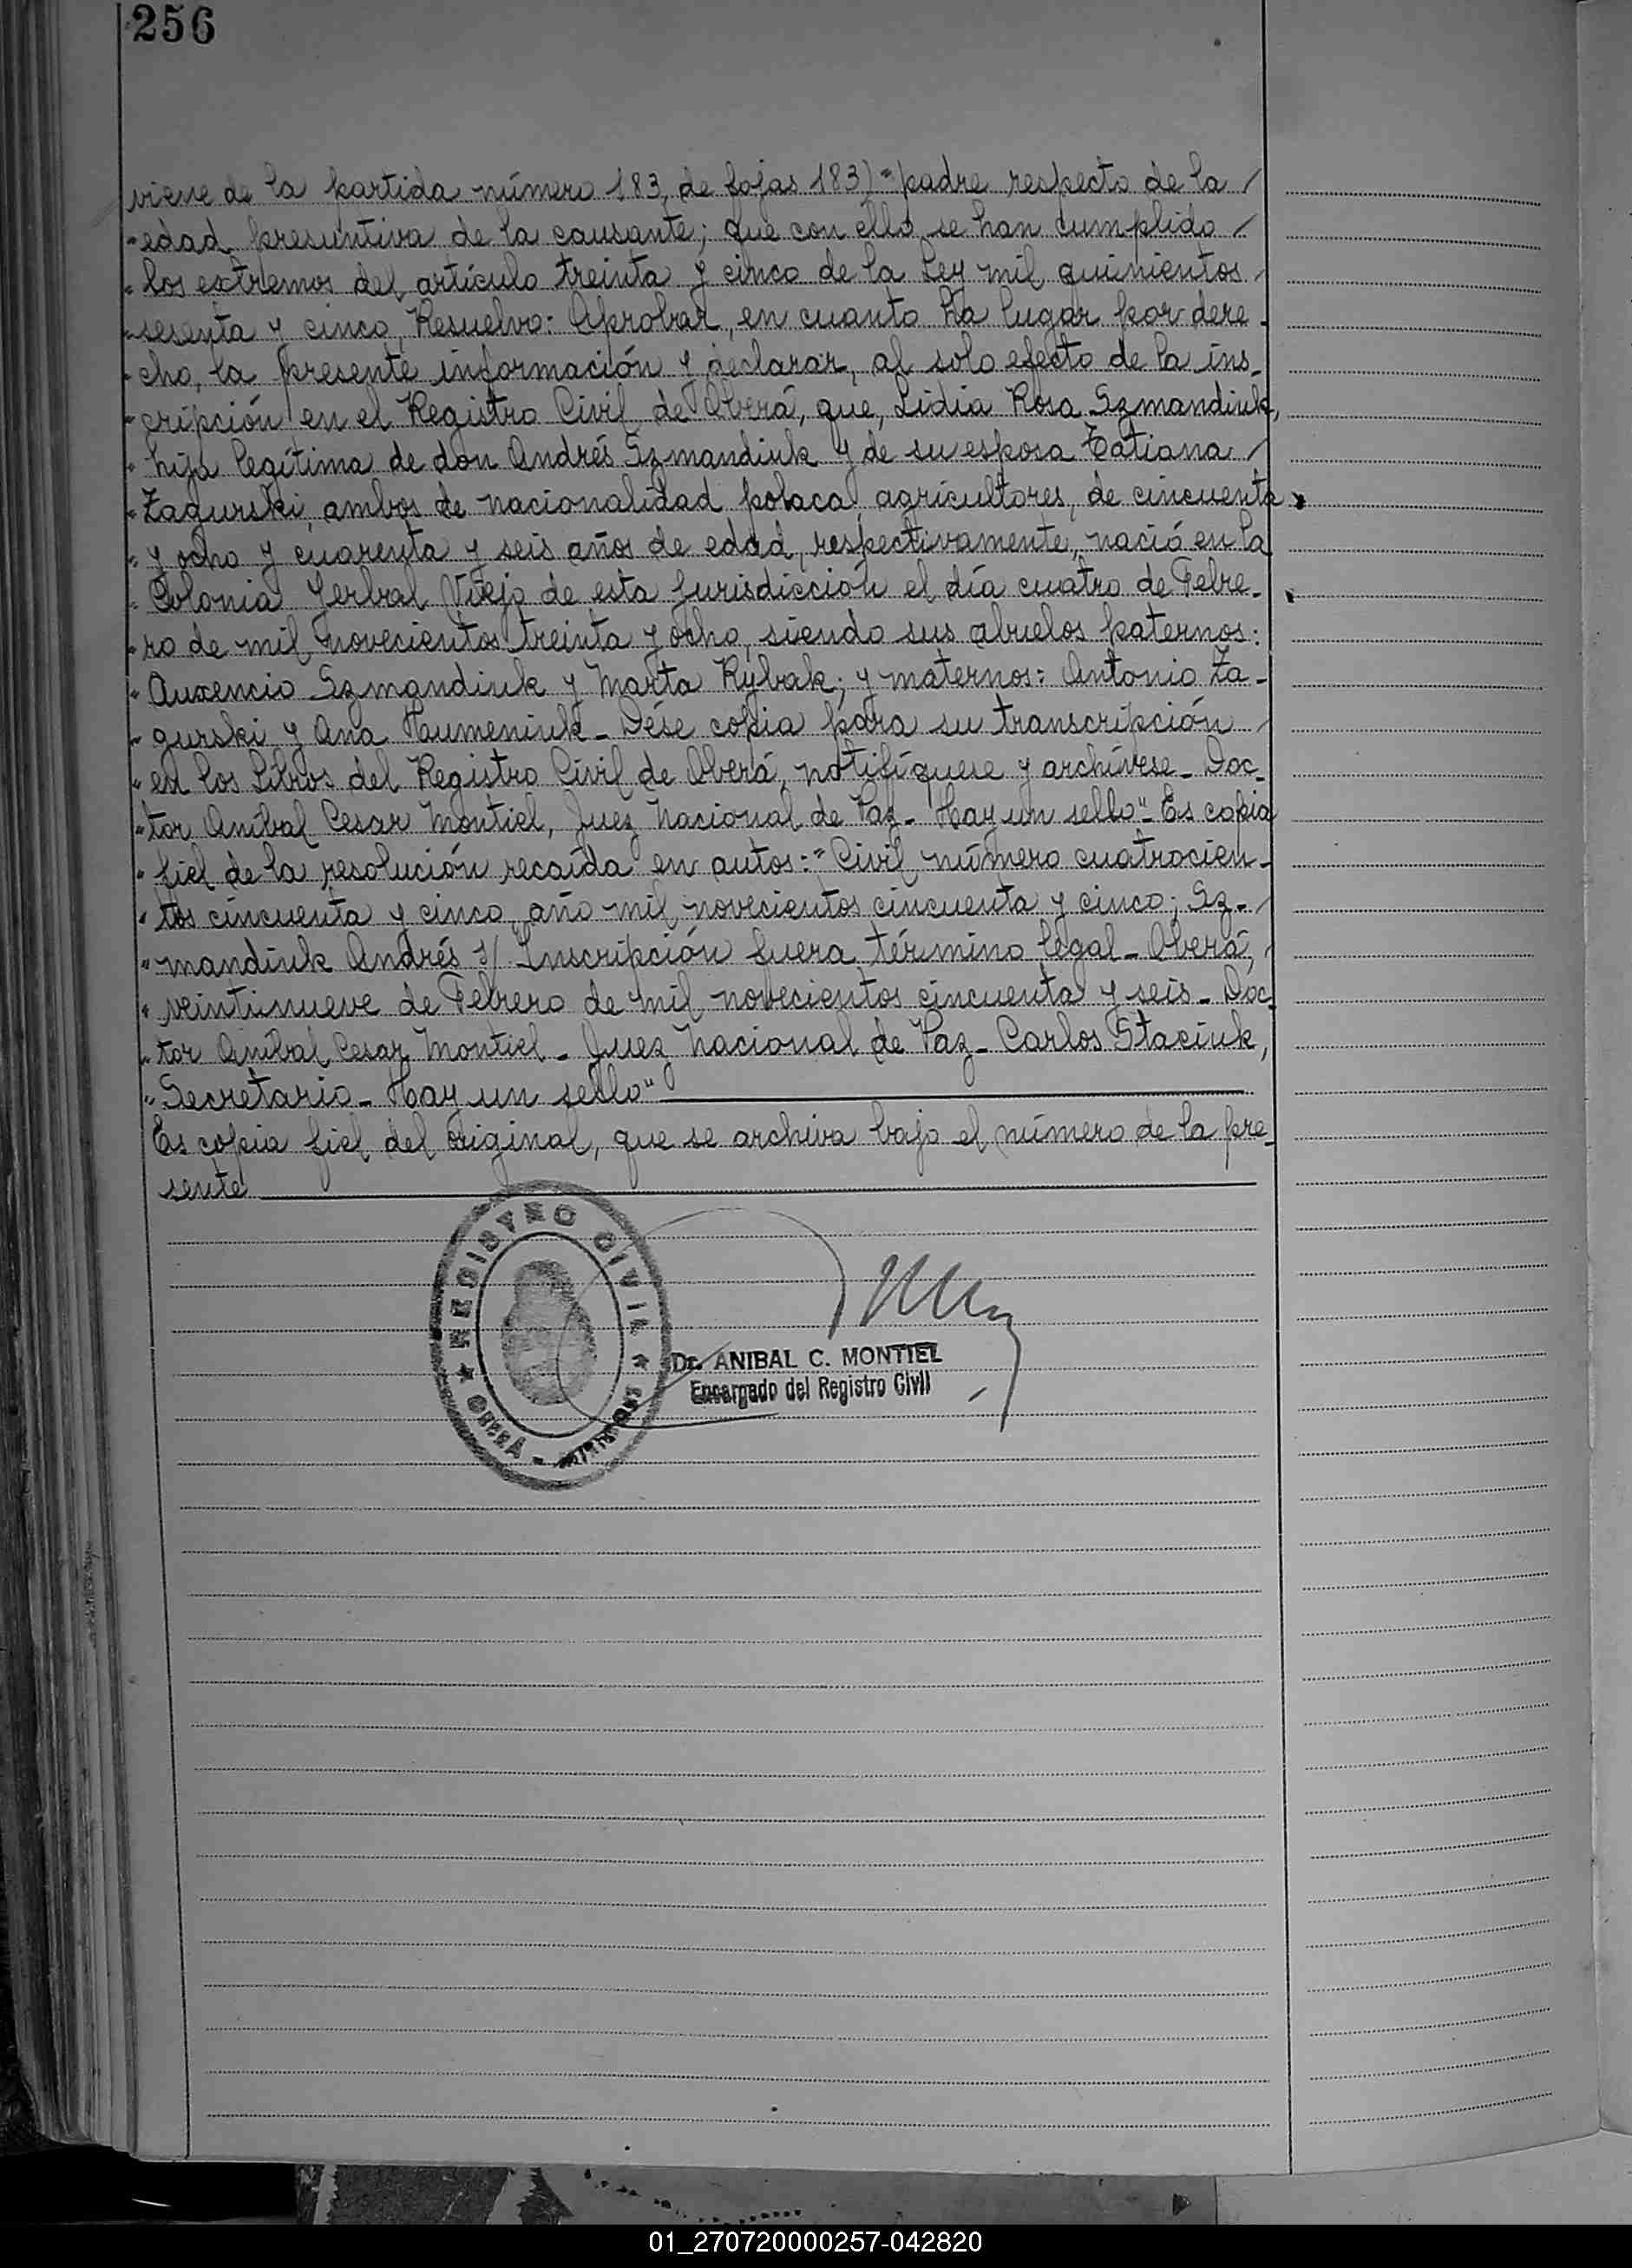 256
viene de la partida número 183, de fojas 183) "padre respecto de la /
"edad presuntiva de la causante; que con ello se han cumplido /
"los extremos del artículo treinta y cinco de la Ley mil quinientos /
"sesenta y cinco, Resuelvo: Aprobar, en cuanto ha lugar por dere-
"cho, la presente información y declarar, al solo efecto de la ins-
"cripción en el Registro Civil de Oberá, que, Lidia Rosa Szmandiuk,
"hija legítima de don Andrés Szmandiuk y de su esposa Tatiana /
"Zagurski, ambos de nacionalidad polaca, agricultores, de cincuenta
"y ocho y cuarenta y seis años de edad, respectivamente, nació en la
"Colonia Yerbal Viejo de esta Jurisdicción el día cuatro de Febre-
"ro de mil novecientos treinta y ocho, siendo sus abuelos paternos:
"Auxencio Szmandiuk y Marta Rybak; y maternos: Antonio Za-
"gurski y Ana Naumeniuk_ Dése copia para su transcripción /
"en los Libros del Registro Civil de Oberá, notifíquese y archívese_ Doc-
"tor Aníbal Cesar Montiel, Juez Nacional de Paz_ Hay un sello"_ Es copia
"fiel de la resolución recaída en autos: "Civil número cuatrocien-
"tos cincuenta y cinco, año mil novecientos cincuenta y cinco; Sz- /
"mandiuk Andrés s/ Inscripción fuera término legal_ Oberá, /
"veintinueve de Febrero de mil novecientos cincuenta y seis_ Doc-
"tor Aníbal Cesar Montiel_ Juez Nacional de Paz_ Carlos Staciuk,
"Secretario_ Hay un sello"
Es copia fiel del original, que se archiva bajo el número de la pre-
sente
REGISTRO CIVIL
OBERÁ - MISIONES
Dr. ANIBAL C. MONTIEL
Encargado del Registro Civil
01_270720000257-042820